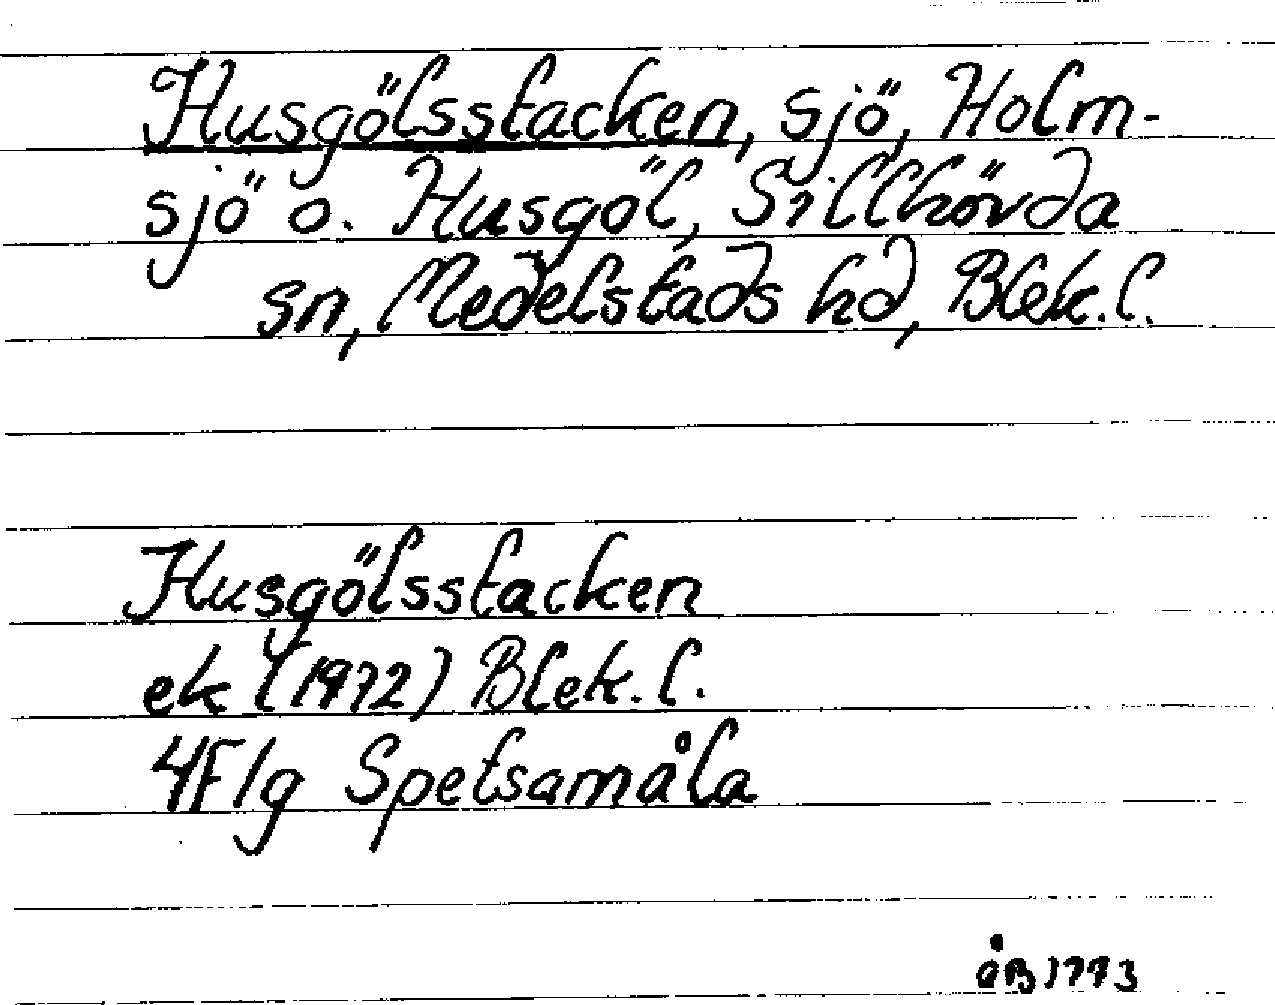 Husgölsstacken, sjö, Holm-
sjö o. Husgöl, Sillhövda
sn, Medelstads hd, Blek. l.
Husgölsstacken
ek (1972) Blek. l.
4F/g Spetsamåla
åB 1993